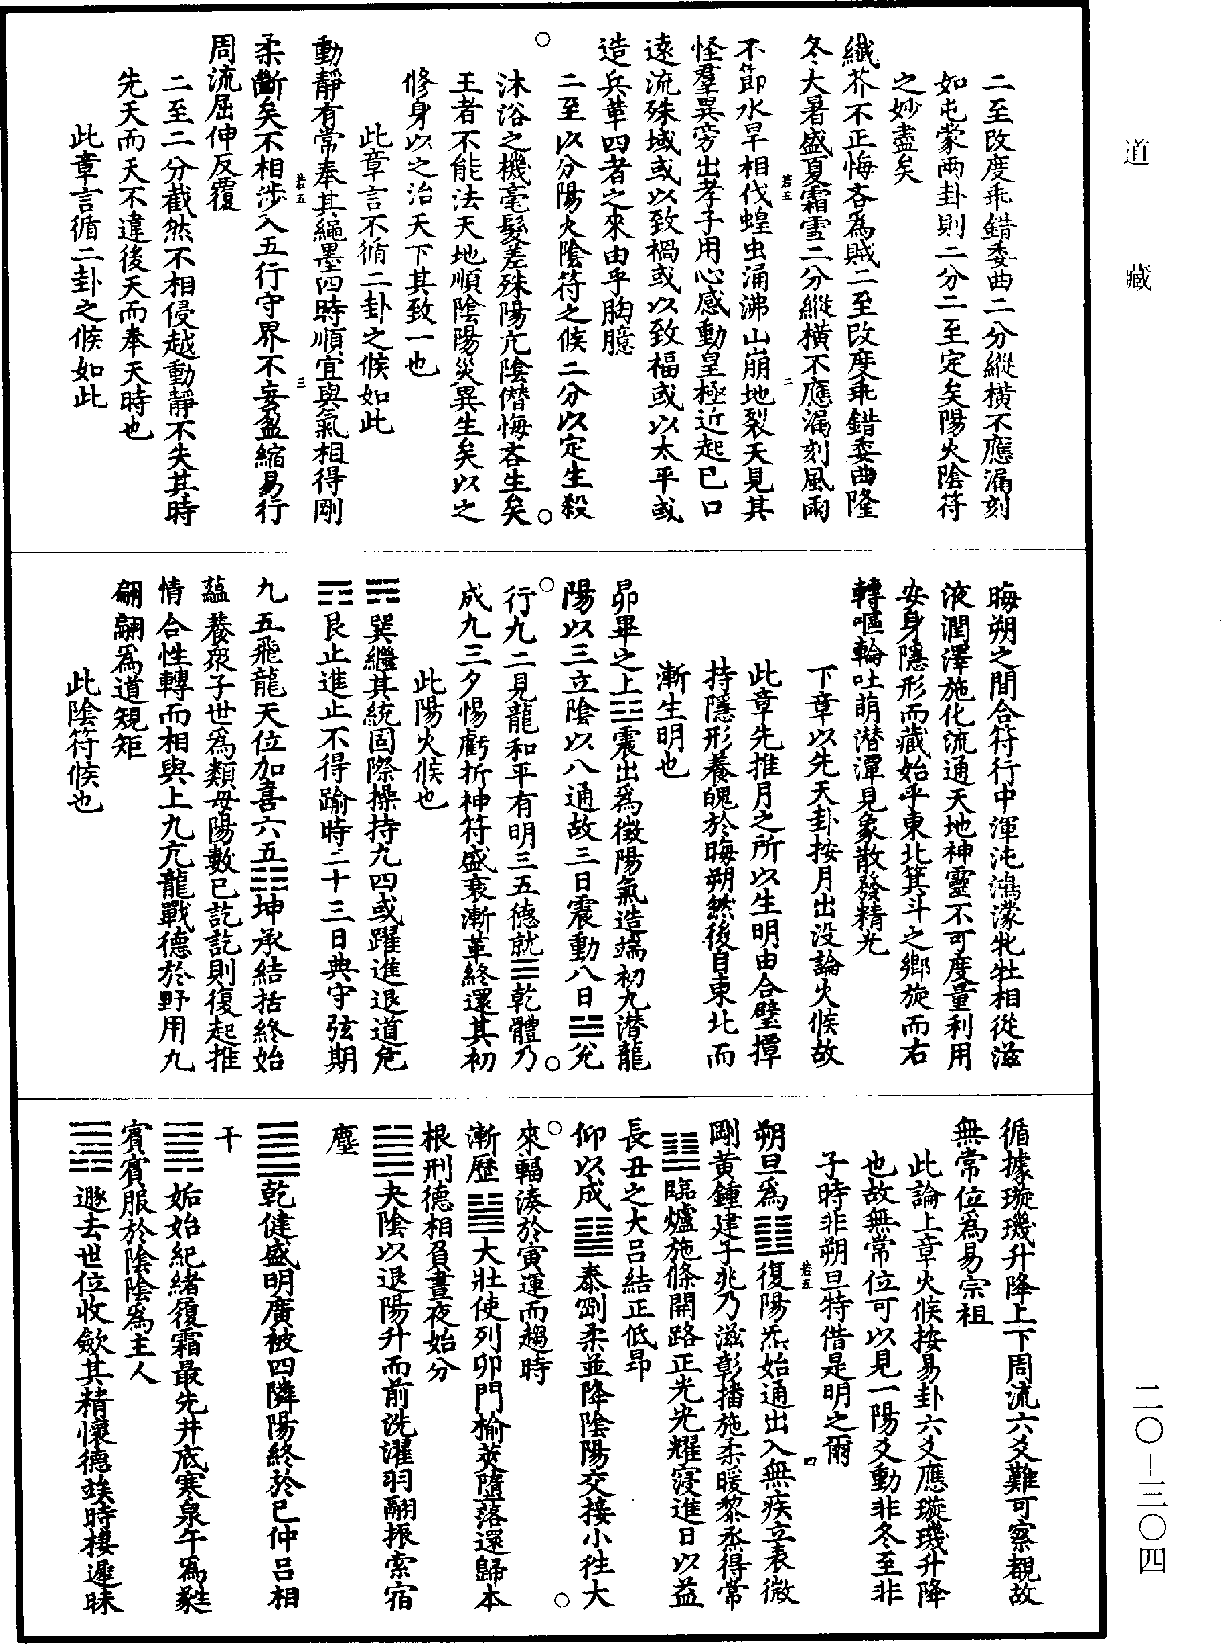 道藏
二〇—三〇四
二至改度乖錯委曲二分縱橫不應漏刻
如屯蒙兩卦則二分二至定矣陽火陰符
之妙盡矣
纖芥不正悔吝為賊二至改度乖錯委曲隆
冬大暑盛夏霜雪二分縱橫不應漏刻風雨
不節水旱相伐蝗虫涌沸山崩地裂天見其
怪羣異旁出孝子用心感動皇極近起已口
遠流殊域或以致禍或以致福或以太平或
造兵革四者之來由乎胸臆
二至以分陽火陰符之候二分以定生殺
沐浴之機毫髮差殊陽亢陰僭悔吝生矣
王者不能法天地順陰陽災異生矣以之
修身以之治天下其致一也
此章言不循二卦之候如此
動靜有常奉其繩墨四時順宜與氣相得剛
柔斷矣不相涉入五行守界不妄盈縮易行
周流屈伸反覆
二至二分截然不相侵越動靜不失其時
先天而天不違後天而奉天時也
此章言循二卦之候如此
晦朔之間合符行中渾沌鴻濛牝牡相從滋
液潤澤施化流通天地神靈不可度量利用
安身隱形而藏始乎東北箕斗之鄉旋而右
轉嘔輪吐萌潛潭見象散發精光
下章以先天卦按月出沒論火候故
此章先推月之所以生明由合璧撢
持隱形養魄於晦朔然後自東北而
漸生明也
昴畢之上☳震出為徵陽氣造端初九潛龍
陽以三立陰以八通故三日震動八日☱兊
行九二見龍和平有明三五德就☰乾體乃
成九三夕惕虧折神符盛衰漸革終還其初
此陽火候也
☴巽繼其統固際操持九四或躍進退道危
☶艮止進止不得踰時二十三日典守弦期
九五飛龍天位加喜六五☷坤承結括終始
蘊養眾子世為類母陽數已訖訖則復起推
情合性轉而相與上九亢龍戰德於野用九
翩翩為道規矩
此陰符候也
循據璇璣升降上下周流六爻難可察覩故
無常位為易宗祖
此論上章火候按易卦六爻應璇璣升降
也故無常位可以見一陽爻動非冬至非
子時非朔旦特借是明之爾
朔旦為䷗復陽炁始通出入無疾立表微
剛黃鍾建子兆乃滋彰播施柔暖黎烝得常
䷒臨爐施條開路正光光耀寖進日以益
長丑之大呂結正低昂
仰以成䷊泰剛柔並降陰陽交接小往大
來輻湊於寅運而趨時
漸歷䷡大壯使列卯門榆莢墮落還歸本
根刑德相負晝夜始分
䷪夬陰以退陽升而前洗濯羽翮振索宿
塵
䷀乾健盛明廣被四隣陽終於巳仲呂相
干
䷫姤始紀緒履霜最先井底寒泉午為蕤
賓賓服於陰陰為主人
䷠遯去世位收斂其精懷德竢時棲遲昧